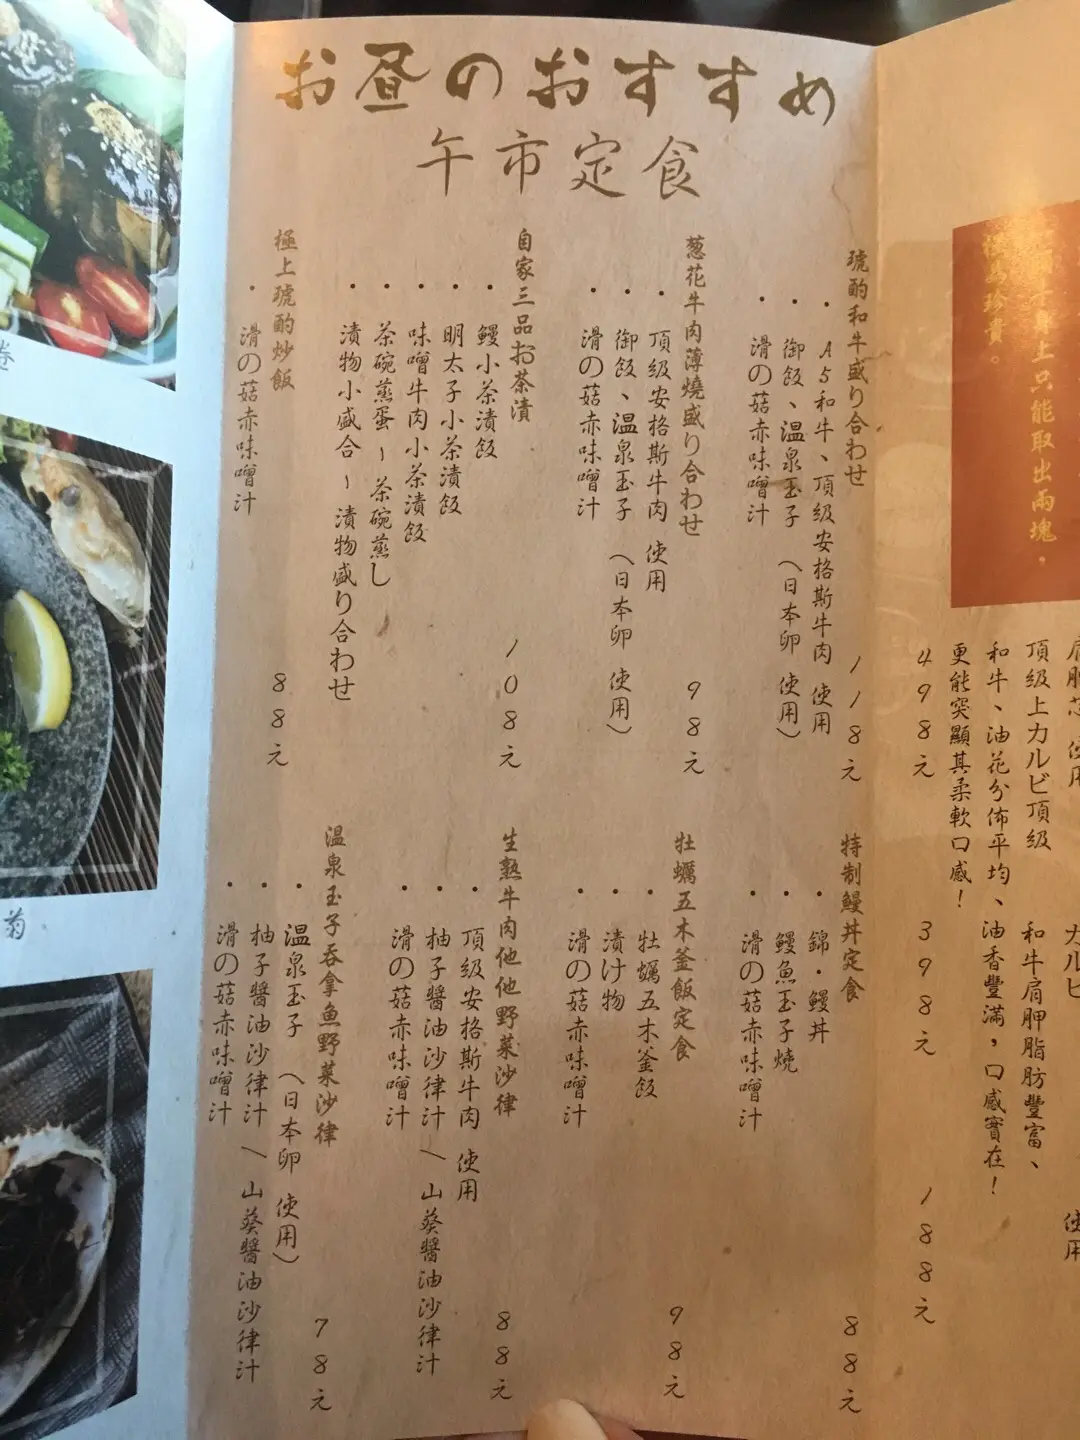 お昼のおすすめ
午市定食
琥酌和牛盛り合わせ
・A5和牛、頂級安格斯牛肉 使用
・御飯、温泉玉子 (日本卵 使用)
・滑の菇赤味噌汁
118元
葱花牛肉薄燒盛り合わせ
・頂級安格斯牛肉 使用
・御飯、温泉玉子 (日本卵 使用)
・滑の菇赤味噌汁
98元
自家三品お茶漬
・鰻小茶漬飯
・明太子小茶漬飯
・味噌牛肉小茶漬飯
・茶碗蒸蛋-茶碗蒸し
・漬物小盛合-漬物盛り合わせ
108元
極上琥酌炒飯
・滑の菇赤味噌汁
88元
特制鰻丼定食
・錦・鰻丼
・鰻魚玉子燒
・滑の菇赤味噌汁
88元
牡蠣五木釜飯定食
・牡蠣五木釜飯
・漬け物
・滑の菇赤味噌汁
98元
生熟牛肉他他野菜沙律
・頂級安格斯牛肉 使用
・柚子醬油沙律汁/山葵醬油沙律汁
・滑の菇赤味噌汁
88元
温泉玉子吞拿魚野菜沙律
・温泉玉子 (日本卵 使用)
・柚子醬油沙律汁/山葵醬油沙律汁
・滑の菇赤味噌汁
78元
身上只能取出兩塊,
珍貴。
使用
頂級上カルビ頂級
和牛、油花分佈平均、
更能突顯其柔軟口感!
498元
カルビ
和牛肩胛脂肪豐富、
油香豐滿,口感實在!
398元
使用
188元
卷
菊